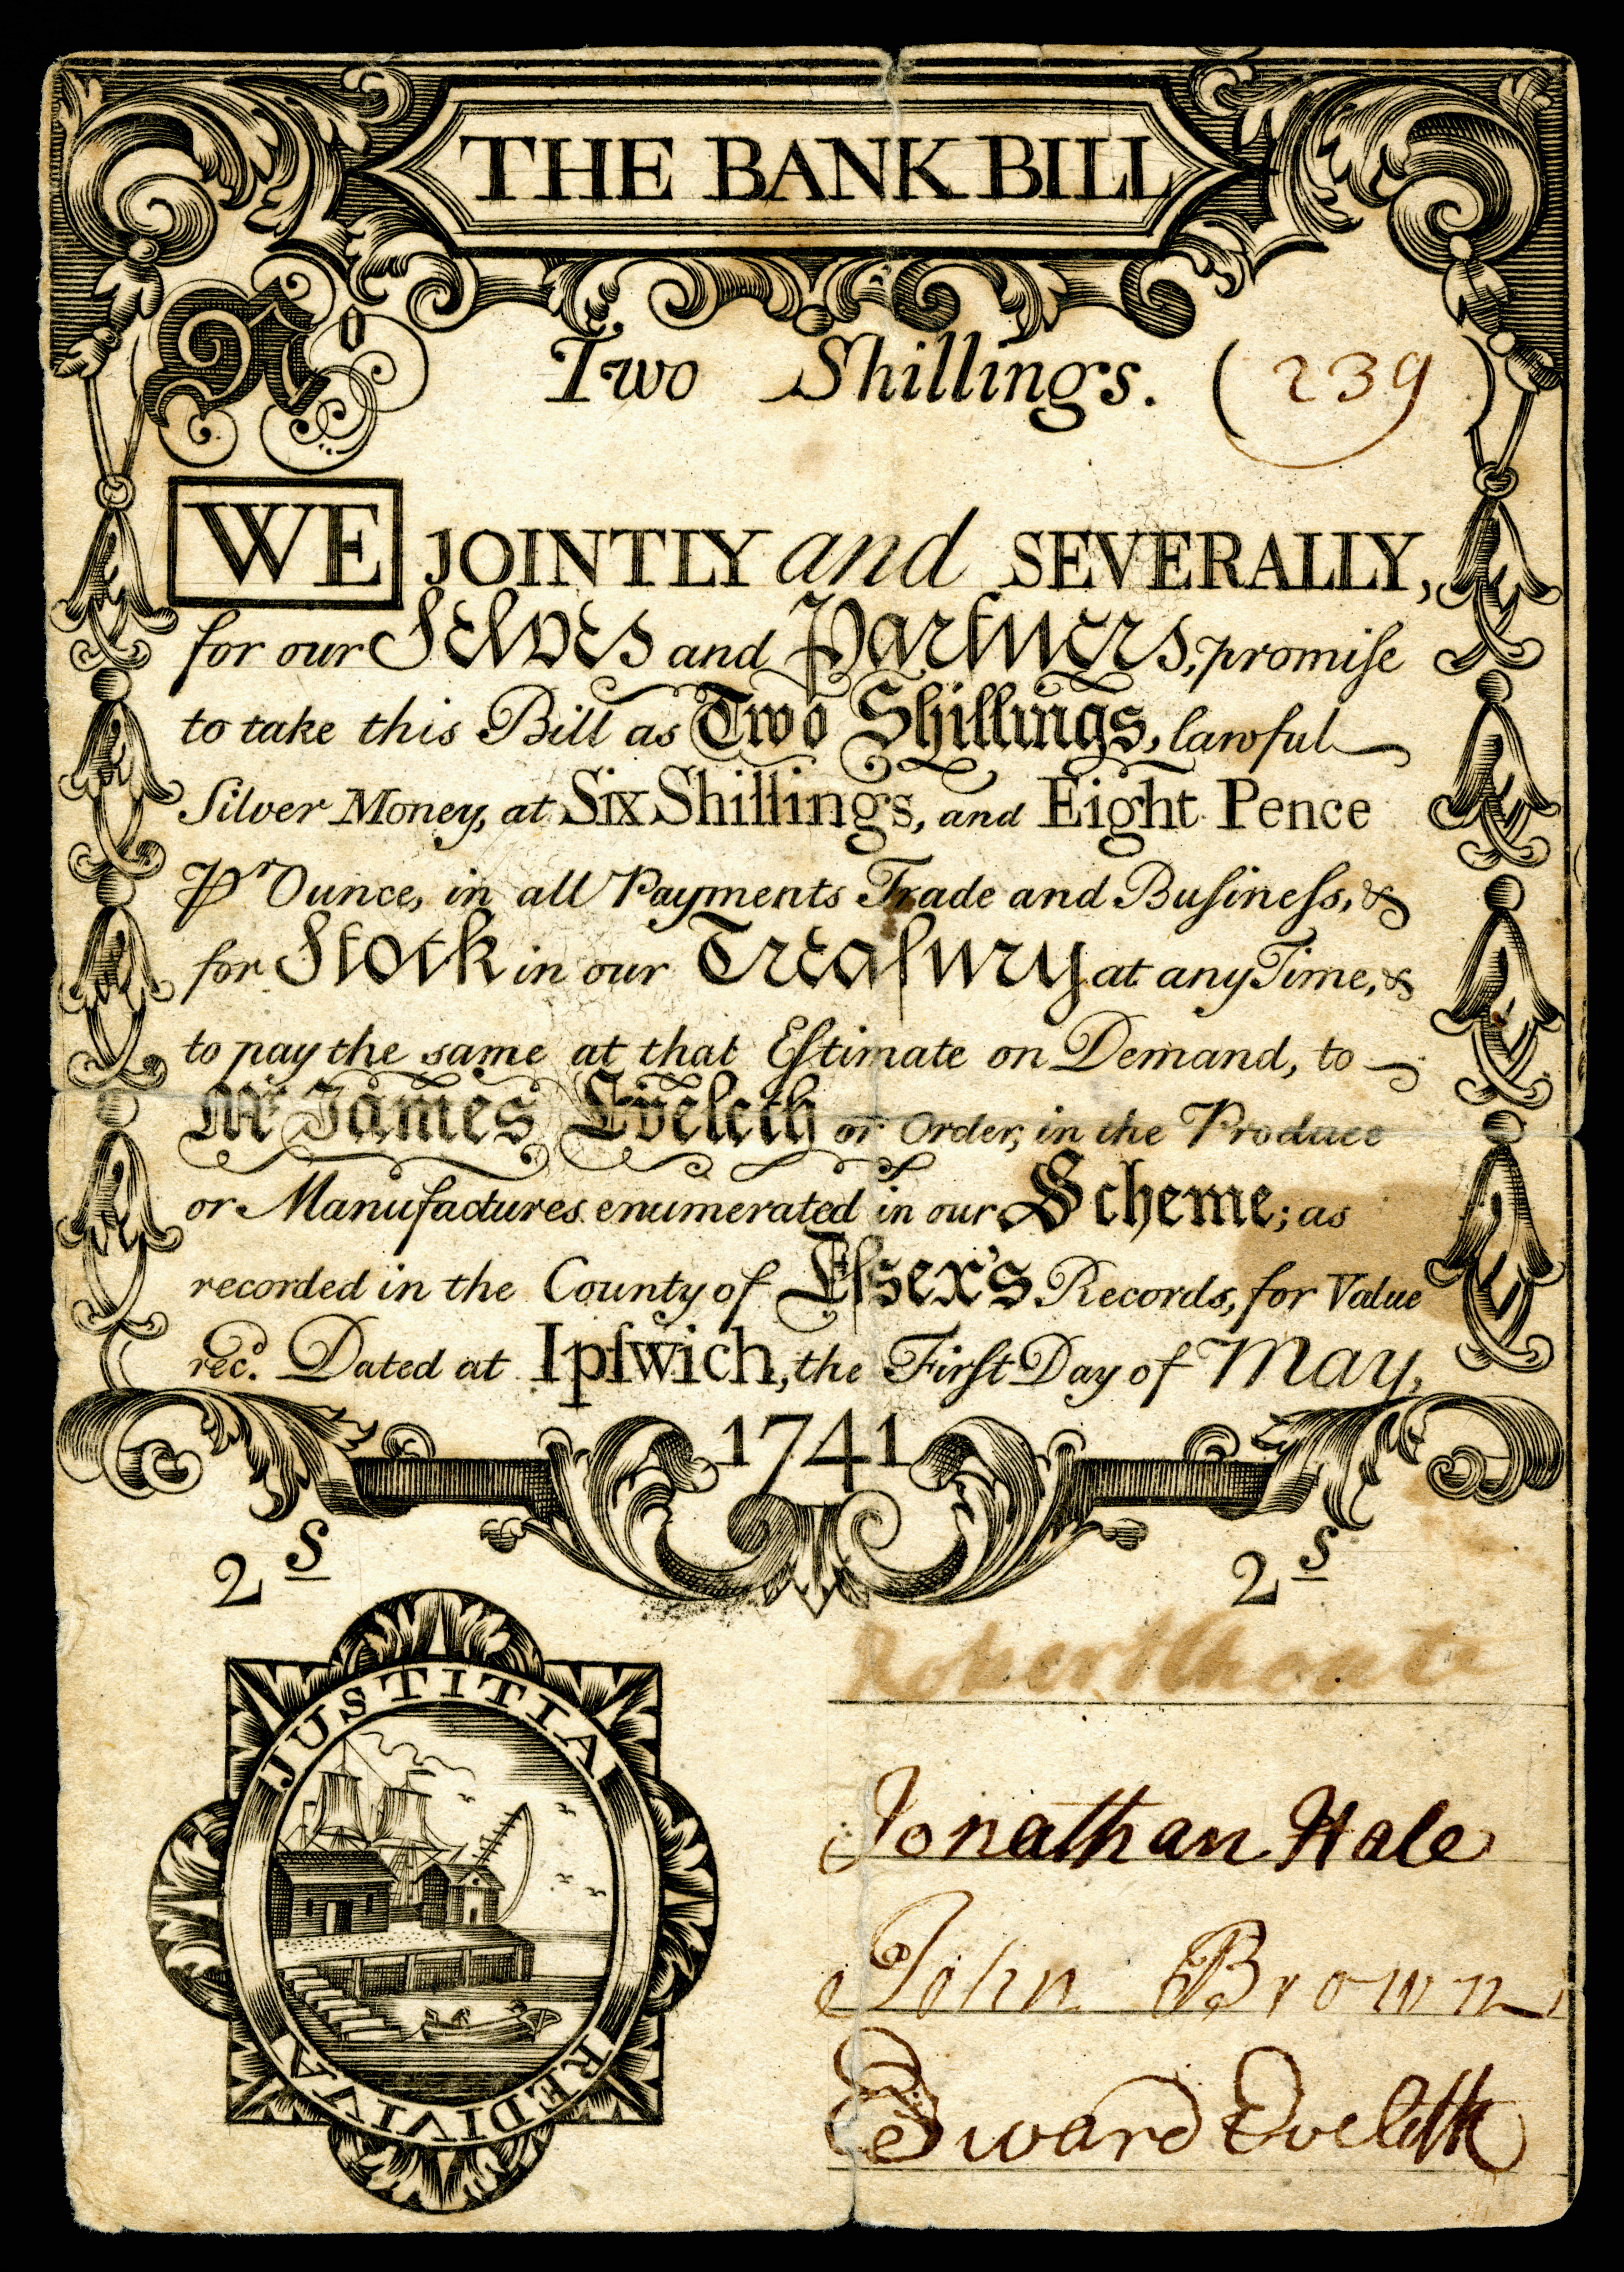 THE BANK BILL
No Two Shillings. (239)
WE JOINTLY and SEVERALLY,
for our Selves and Partners, promiſe
to take this Bill as Two Shillings, lawful
Silver Money, at Six Shillings, and Eight Pence
Pr Ounce, in all Payments Trade and Buſineſs, &
for Stock in our Treaſury at any Time, &
to pay the same at that Eſtimate on Demand, to
Mr James Eveleth or Order, in the Produce
or Manufactures enumerated in our Scheme; as
recorded in the County of Eſsex's Records, for Value
recd. Dated at Ipſwich, the Firſt Day of May,
1741
2 s 2 s
JUSTITIA
REDIVIVA
Robert Choate
Jonathan Hale
John Brown
Edward Eveleth